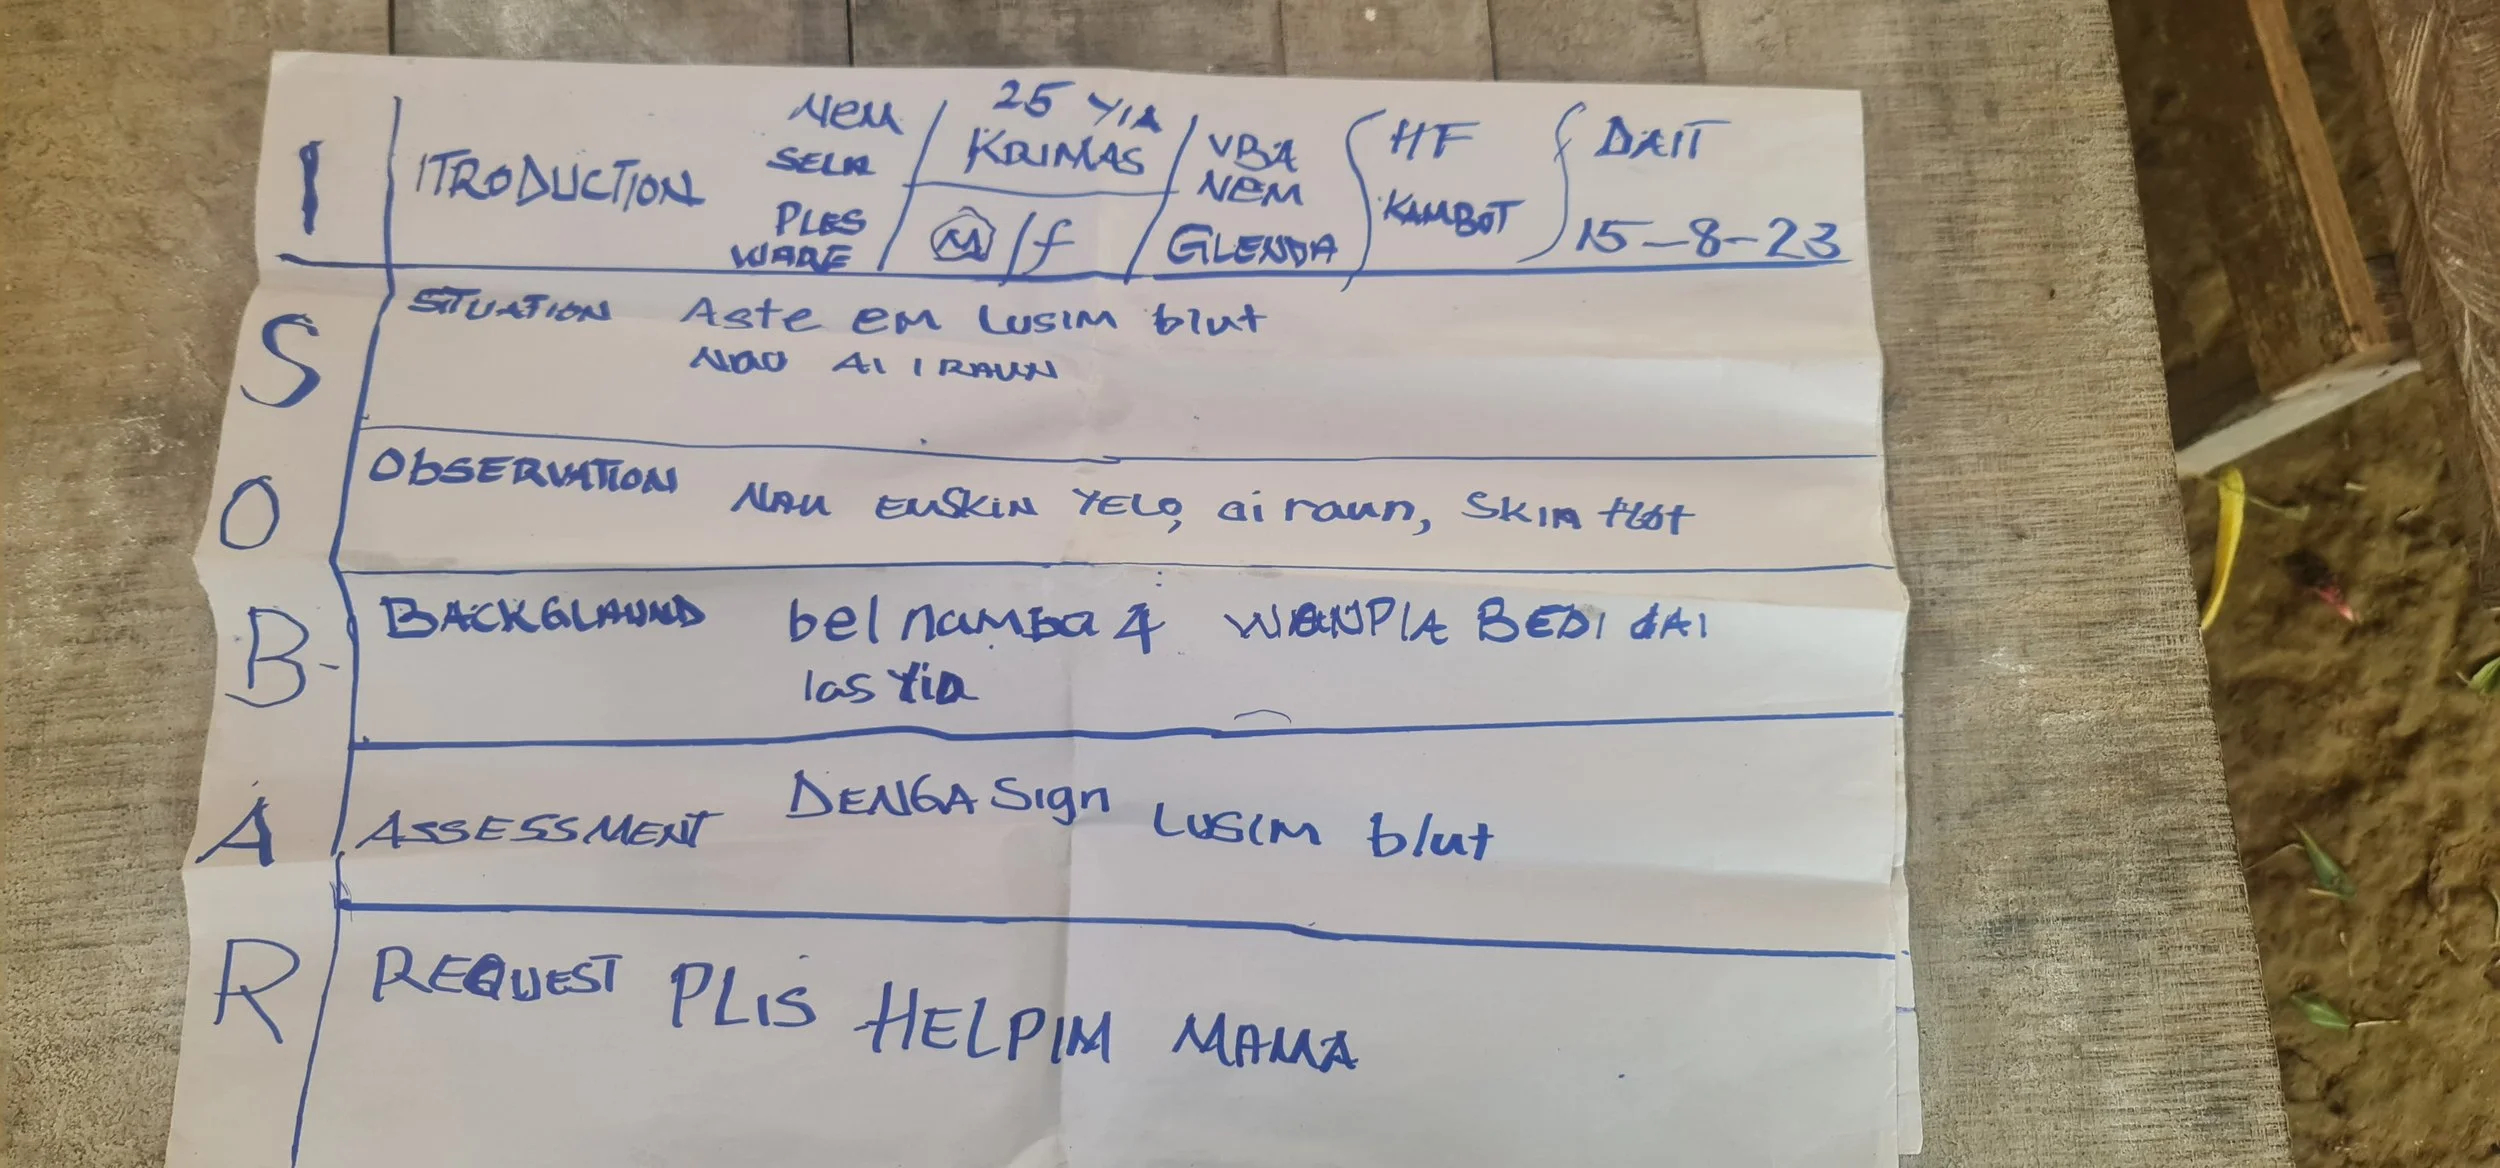 I ITRODUCTION
NEM
SELA
PLES
WARE
25 YIA
KRIMAS
M / f
VBA
NEM
GLENDA
HF
KAMBOT
DAIT
15-8-23
S SITUATION Aste em Lusim blut
NAU AI I RAUN
O ObSERVATION NAU EMSKIN YELO, ai raun, SKIN Hot
B BACKGLAUND bel namba 4 WANPLA BEBI dAI
las YiA
A ASSESSMENT DENGA Sign Lusim blut
R REQUEST PLiS HELPIM MAMA